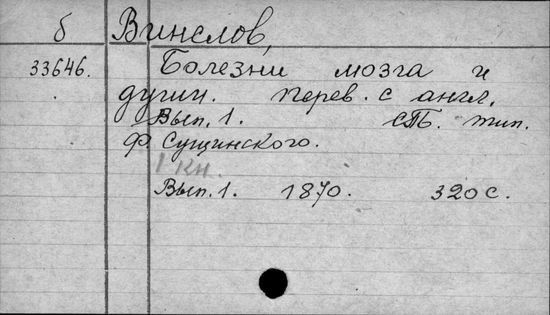 б Винслов,
33646. Болезни мозга и
души. перев. с англ.
Вып. 1. СПБ. тип.
Ф. Сущинского.
1 кн.
Вып. 1. 1870. 320 с.